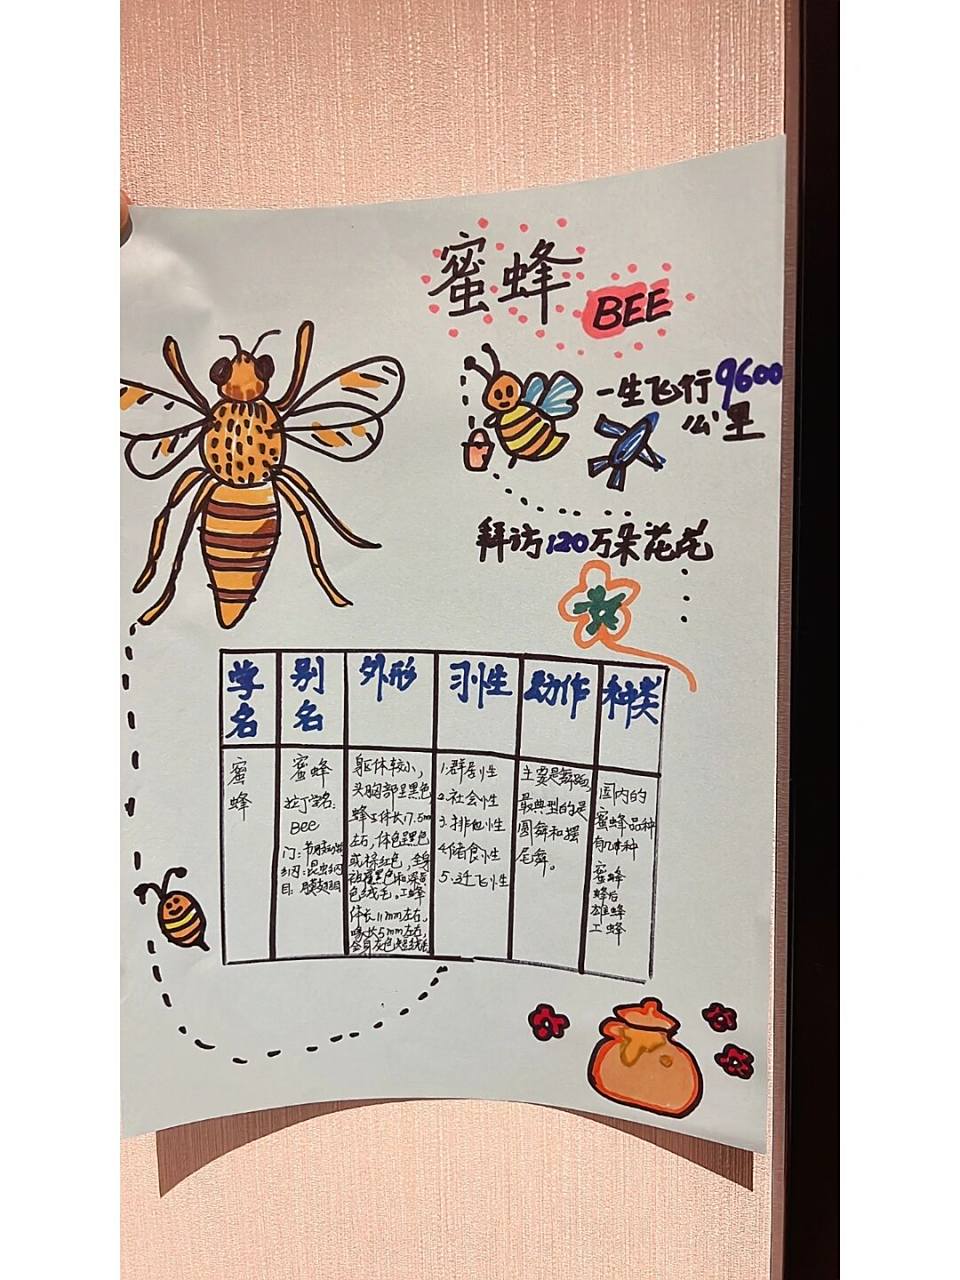 蜜蜂
BEE
一生飞行9600
公里
拜访120万朵花朵
学名
别名
外形
习性
动作
种类
蜜蜂
蜜蜂
拉丁学名:
Bee
门:节肢动物
纲:昆虫纲
目:膜翅目
躯体较小,
头胸部呈黑色
蜂王体长17.5mm
左右,体色呈黑色
或棕红色,全身
被覆黑色和深黄
色绒毛。工蜂
体长11mm左右,
喙长5mm左右,
全身灰色短绒毛
1.群居性
2.社会性
3.排他性
4.储食性
5.迁飞性
主要是舞蹈,
最典型的是
圆舞和摆
尾舞。
国内的
蜜蜂品种
有几种
蜜蜂
蜂后
雄蜂
工蜂